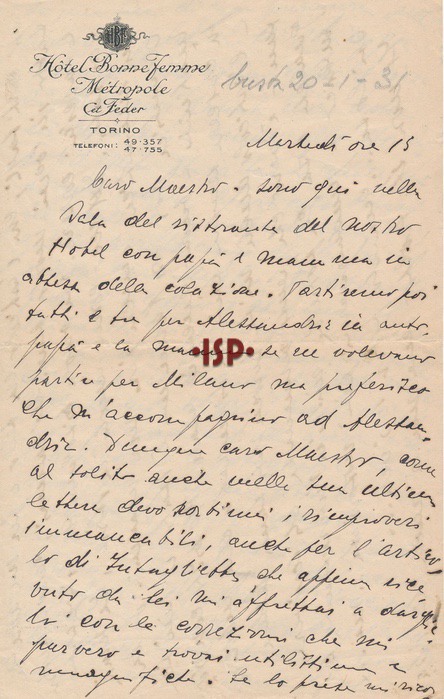 HBF
Hôtel Bonne Femme
Métropole
Et Feder
TORINO
TELEFONI: 49·357
47·755
busta 20-1-31
Martedì ore 13
Caro Maestro. sono qui nella
sala del ristorante del nostro
Hotel con papà e mamma in
attesa della colazione. Partiremo poi
tutti e tre per Alessandria in auto,
papà e la se ne volevano
partire per Milano ma preferisco
che m'accompagnino ad Alessan-
dria. Dunque caro Maestro, come
al solito anche nella sua ultima
lettera devo sorbirmi i rimproveri
immancabili, anche per l'artico
lo di Intaglietta che appena rice
vuto da lei mi affrettai a darglie
lo con le correzioni che mi
parvero e trovai utilissime e
magnifiche. Se lo prese mi
ISP